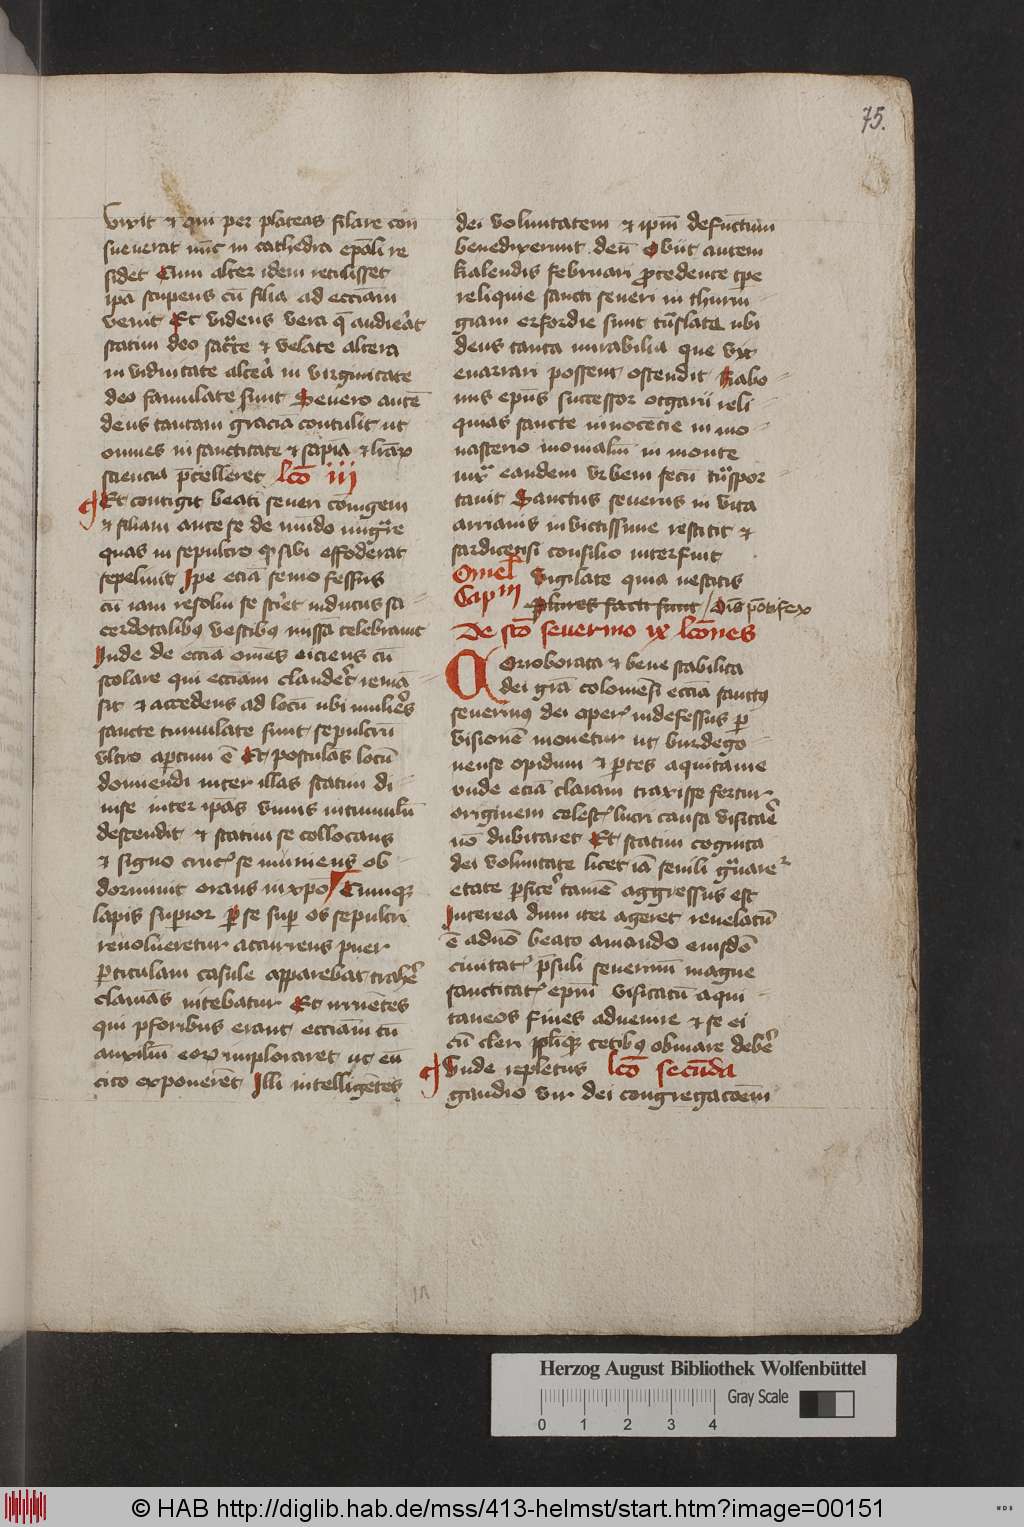 75.
vixit et qui per plateas filare con
sueverat nūc in cathedra epāli re
sidet Cum alter idem retulisset
ipa stupens cū filia ad ecciam
venit Et videns vera q̄ audierat
statim deo sacrate et velate altera
in viduitate altera in virginitate
deo famulate sunt Severo autē
deus tantam graciā contulit ut
omnes in sanctitate et sapīa et
sciencia p̄celleret lcō iii
Et contigit beati severi coniugem
et filiam ante se de mūdo migrare
quas in sepulcro qd sibi effoderat
sepelivit Ipe eciā senio fessus
cū iam resolvi se sciret indutus sa
cerdotalibus vestibus missā celebravit
Inde de eccia om̄es eiciens cū
scolare qui ecciam clauderet remā
sit et accedens ad locū ubi mulieres
sancte tumulate sunt sepulcrū
ultro aptum ē Et postulās locū
dormiendi inter illas statim di
inter ipas vivus in tumulū
descendit et statim se collocans
et signo crucis se muniens ob
dormivit orans in xpō Cumque
lapis supior per se sup os sepulcri
revolveretur accurrens puer
pticulam casule apparebat trahere
clamās nitebatur Et irruētes
qui pforibus erant ecciam cū
auxiliū eorum imploraret ut eū
cito exponerēt Illi intelligētes
dei voluntatem et ipm̄ defunctum
benedixerunt deū Obiit autem
kalendis februarii procedente tpe
reliquie sancti severi in thurin
giam erfordie sunt trāslate ubi
deus tanta mirabilia que vix
enarrari possent ostendit Rabo
nus epūs successor otgarii reli
quias sancte innocēcie in mo
nasterio monialiū in monte
iuxta eandem urbem secū trāspor
tavit Sanctus severus in vita
arrianis invictissime restitit et
sardicensi consilio interfuit
Omel Vigilate quia nescitis
Cap m Plures facti sunt / Dīs pōtifex
De scō severino ix lcōnes
Corroborata et bene stabilita
dei grā coloniensi eccia sanctus
severinus dei opere indefessus p
visionē monetur ut burdega
nense opidum et ptes aquitanie
unde eciā claram traxisse fertur
originem celestis lucri causa visitare
nō dubitaret Et statim cognita
dei voluntate licet iā senili gravare
etate pficere tamē aggressus est
Interea dum iter ageret revelatū
ē advō beato amando eiusdē
civitatis p̄suli severinū magne
sanctitatis epm̄ visitatū aqui
taneos fines advenire et se ei
cū cleri pliqz cetibus obviare debere
Unde repletus lcō secūda
gaudio vir dei congregacōem
Herzog August Bibliothek Wolfenbüttel
0 1 2 3 4 Gray Scale
© HAB http://diglib.hab.de/mss/413-helmst/start.htm?image=00151
WDB